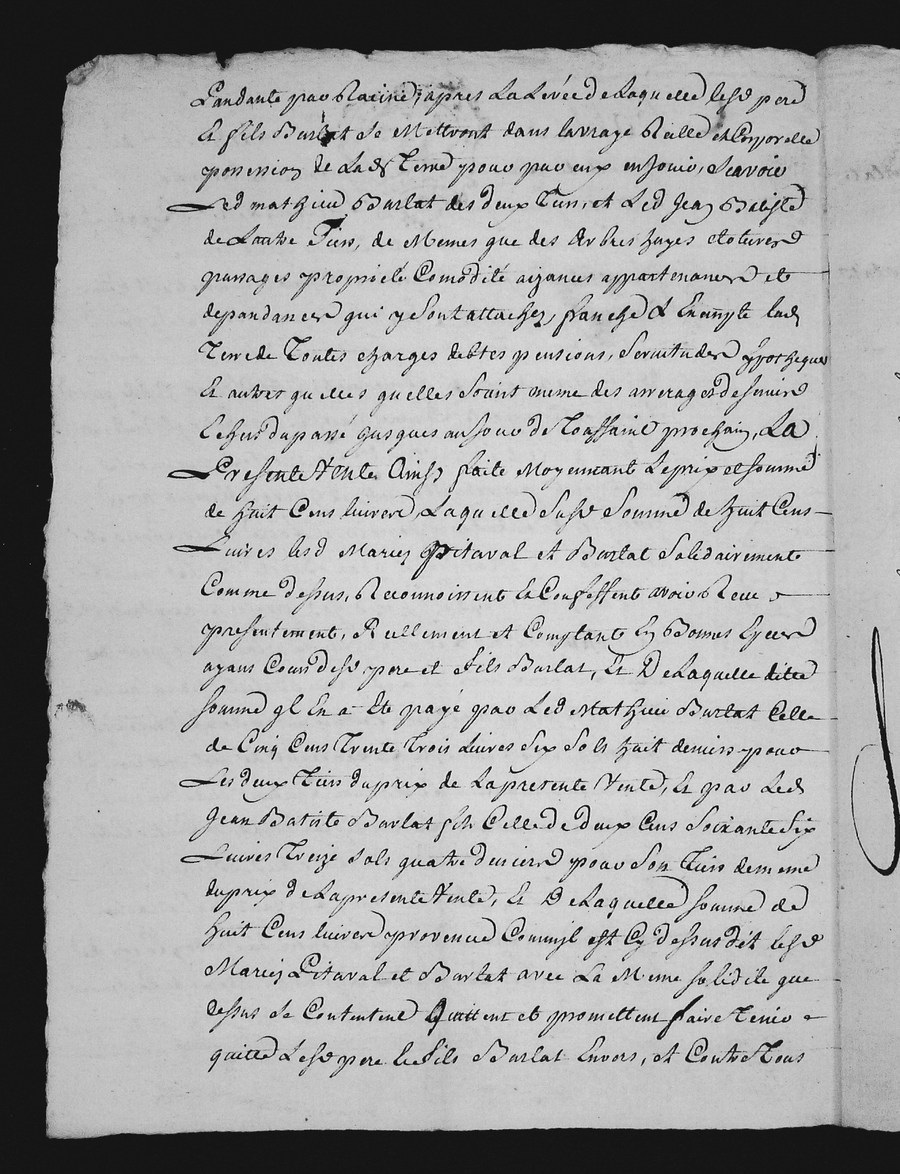 Pandante par Racine, apres La Levée de Laquelle lesd pere
Et fils Burlat Se Mettront dans lavraye Reelle et Corporelle
possession de Lad Terre pour par eux en Jouir, Scavoir
Led mathieu Burlat des deux Tiers, et Led Jean Batiste
de Lautre Tiers, de Memes que des Arbres hayes clotures
passages proprieté Comodité aizances appartenances et
depandances qui y Sont attachez, franche & Exempte lad
Terre de Toutes charges debtes pensions, Servitudes ypotheques
Et autres quelles quelles Soient meme des arrerages de Servis
Echus du passé jusques au jour de Toussaint prochain, La
Presente Vente Ainsy faite Moyennant Le prix et somme
de huit Cens livres, Laquelle Susd Somme de huit Cens
Livres lesd Mariez Pitaval et Burlat Solidairement
Comme dessus, Reconnoissent Et Confessent avoir Receu
presentement, Reellement et Comptant En Bonnes Especes
ayans Cours desd pere et fils Burlat, Et De Laquelle dite
somme il En a Eté payé par Led Mathieu Burlat Celle
de Cinq Cens Trente Trois Livres Six Sols huit deniers pour
Les deux Tiers du prix de La presente Vente, Et par Led
Jean Batiste Burlat fils Celle de deux Cens Soixante Six
Livres Treize Sols quatre deniers pour Son Tiers de meme
du prix de La presente Vente, Et De Laquelle somme de
huit Cens livres provenue Comm'il est Cy dessus dit lesd
Mariez Pitaval et Burlat avec La Meme solidité que
dessus Se Contentent Quittent et promettent faire Tenir
quitte Lesd pere Et fils Burlat Envers, et Contre Tous